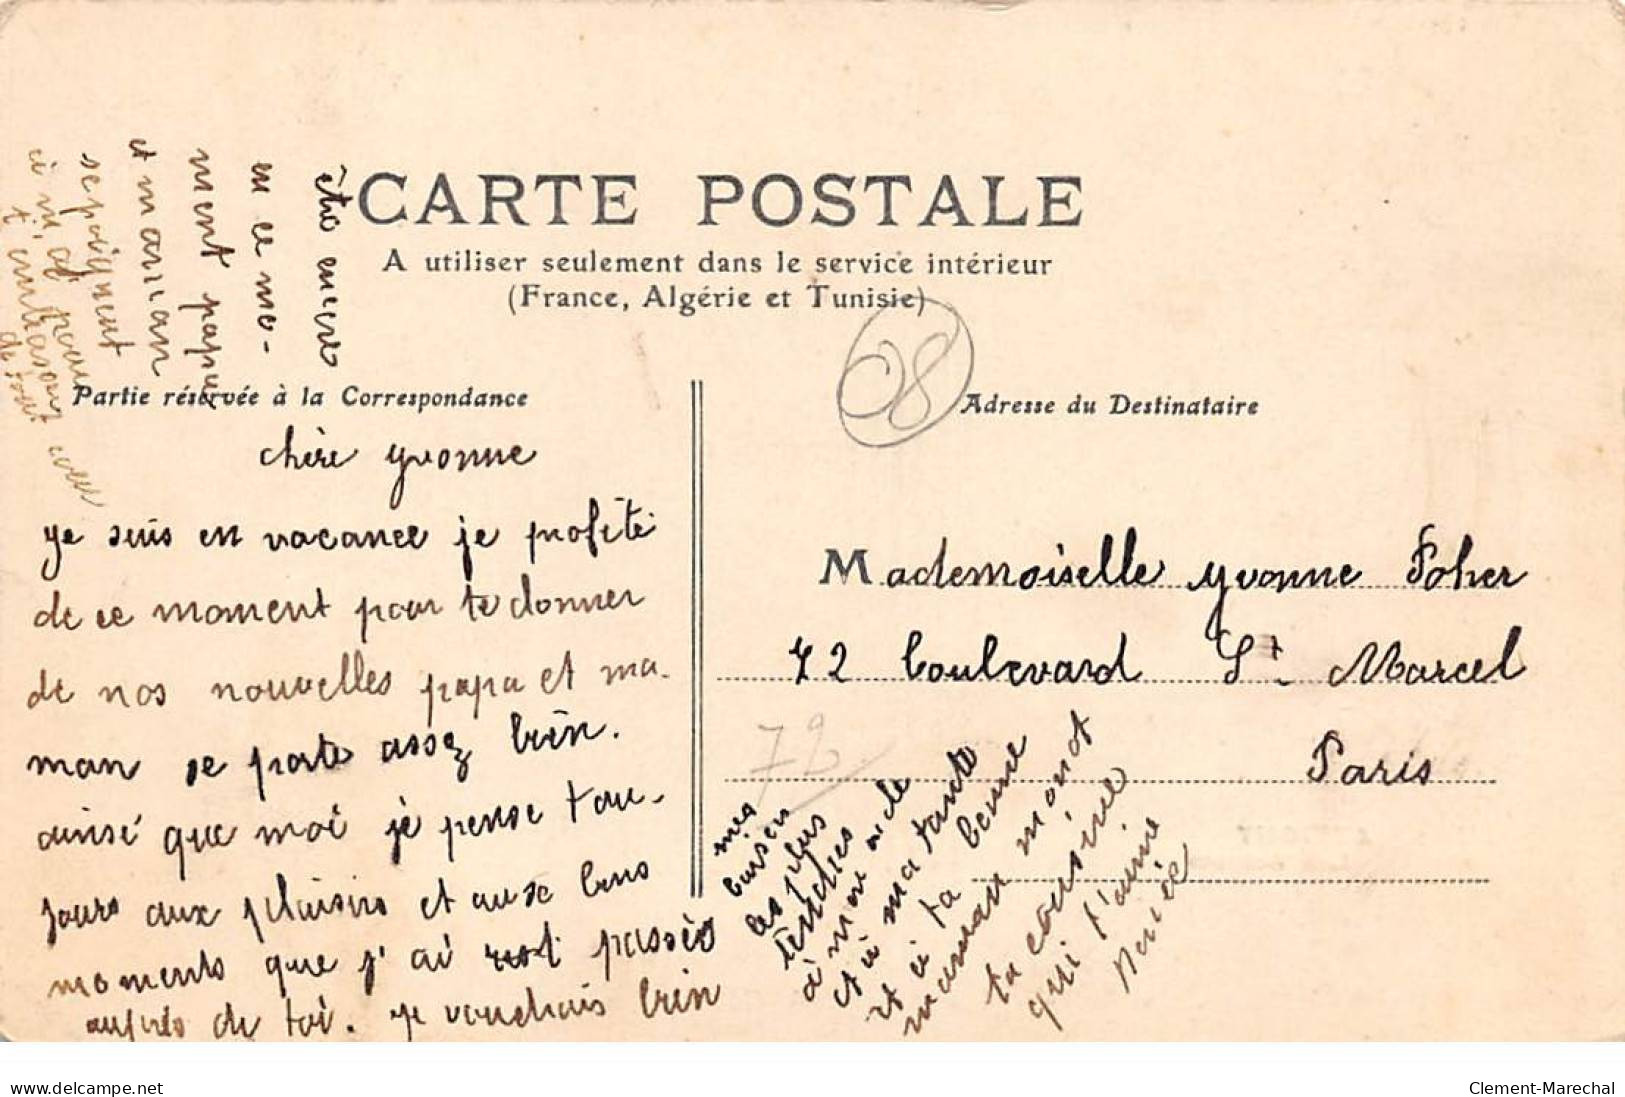 CARTE POSTALE
A utiliser seulement dans le service intérieur
(France, Algérie et Tunisie)
08
Partie réservée à la Correspondance
Adresse du Destinataire
chère yvonne
je suis en vacance je profite
de ce moment pour te donner
de nos nouvelles papa et ma-
man se porte assez bien.
ainsi que moi je pense tou-
jours aux plaisirs et aux bons
moments que j'ai passés
auprès de toi. je voudrais bien
être encre
en ce mo-
ment papa
et maman
se joignent
à moi pour
t'embrasser
de tout cœur
Mademoiselle yvonne Poher
72 boulevard St Marcel
Paris
72
mes
baisers
les plus
tendres
à mon oncle
et à ma tante
et à ta bonne
maman
ta cousine
qui t'aime
www.delcampe.net
Clement-Marechal